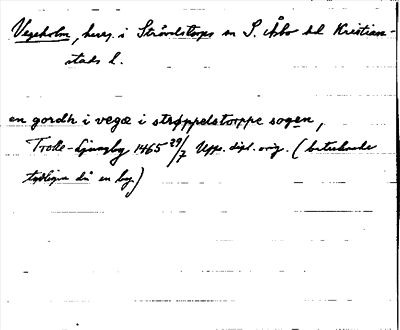 Vegeholm, herrg. i Strövelstorps sn S. Åsbo hd Kristian-
stads l.
en gordh i vegæ i strøppelstorppe sogen,
Trolle-Ljungby 1465 29/7 Upps. dipl. orig. (betecknade
tydligen då en by.)